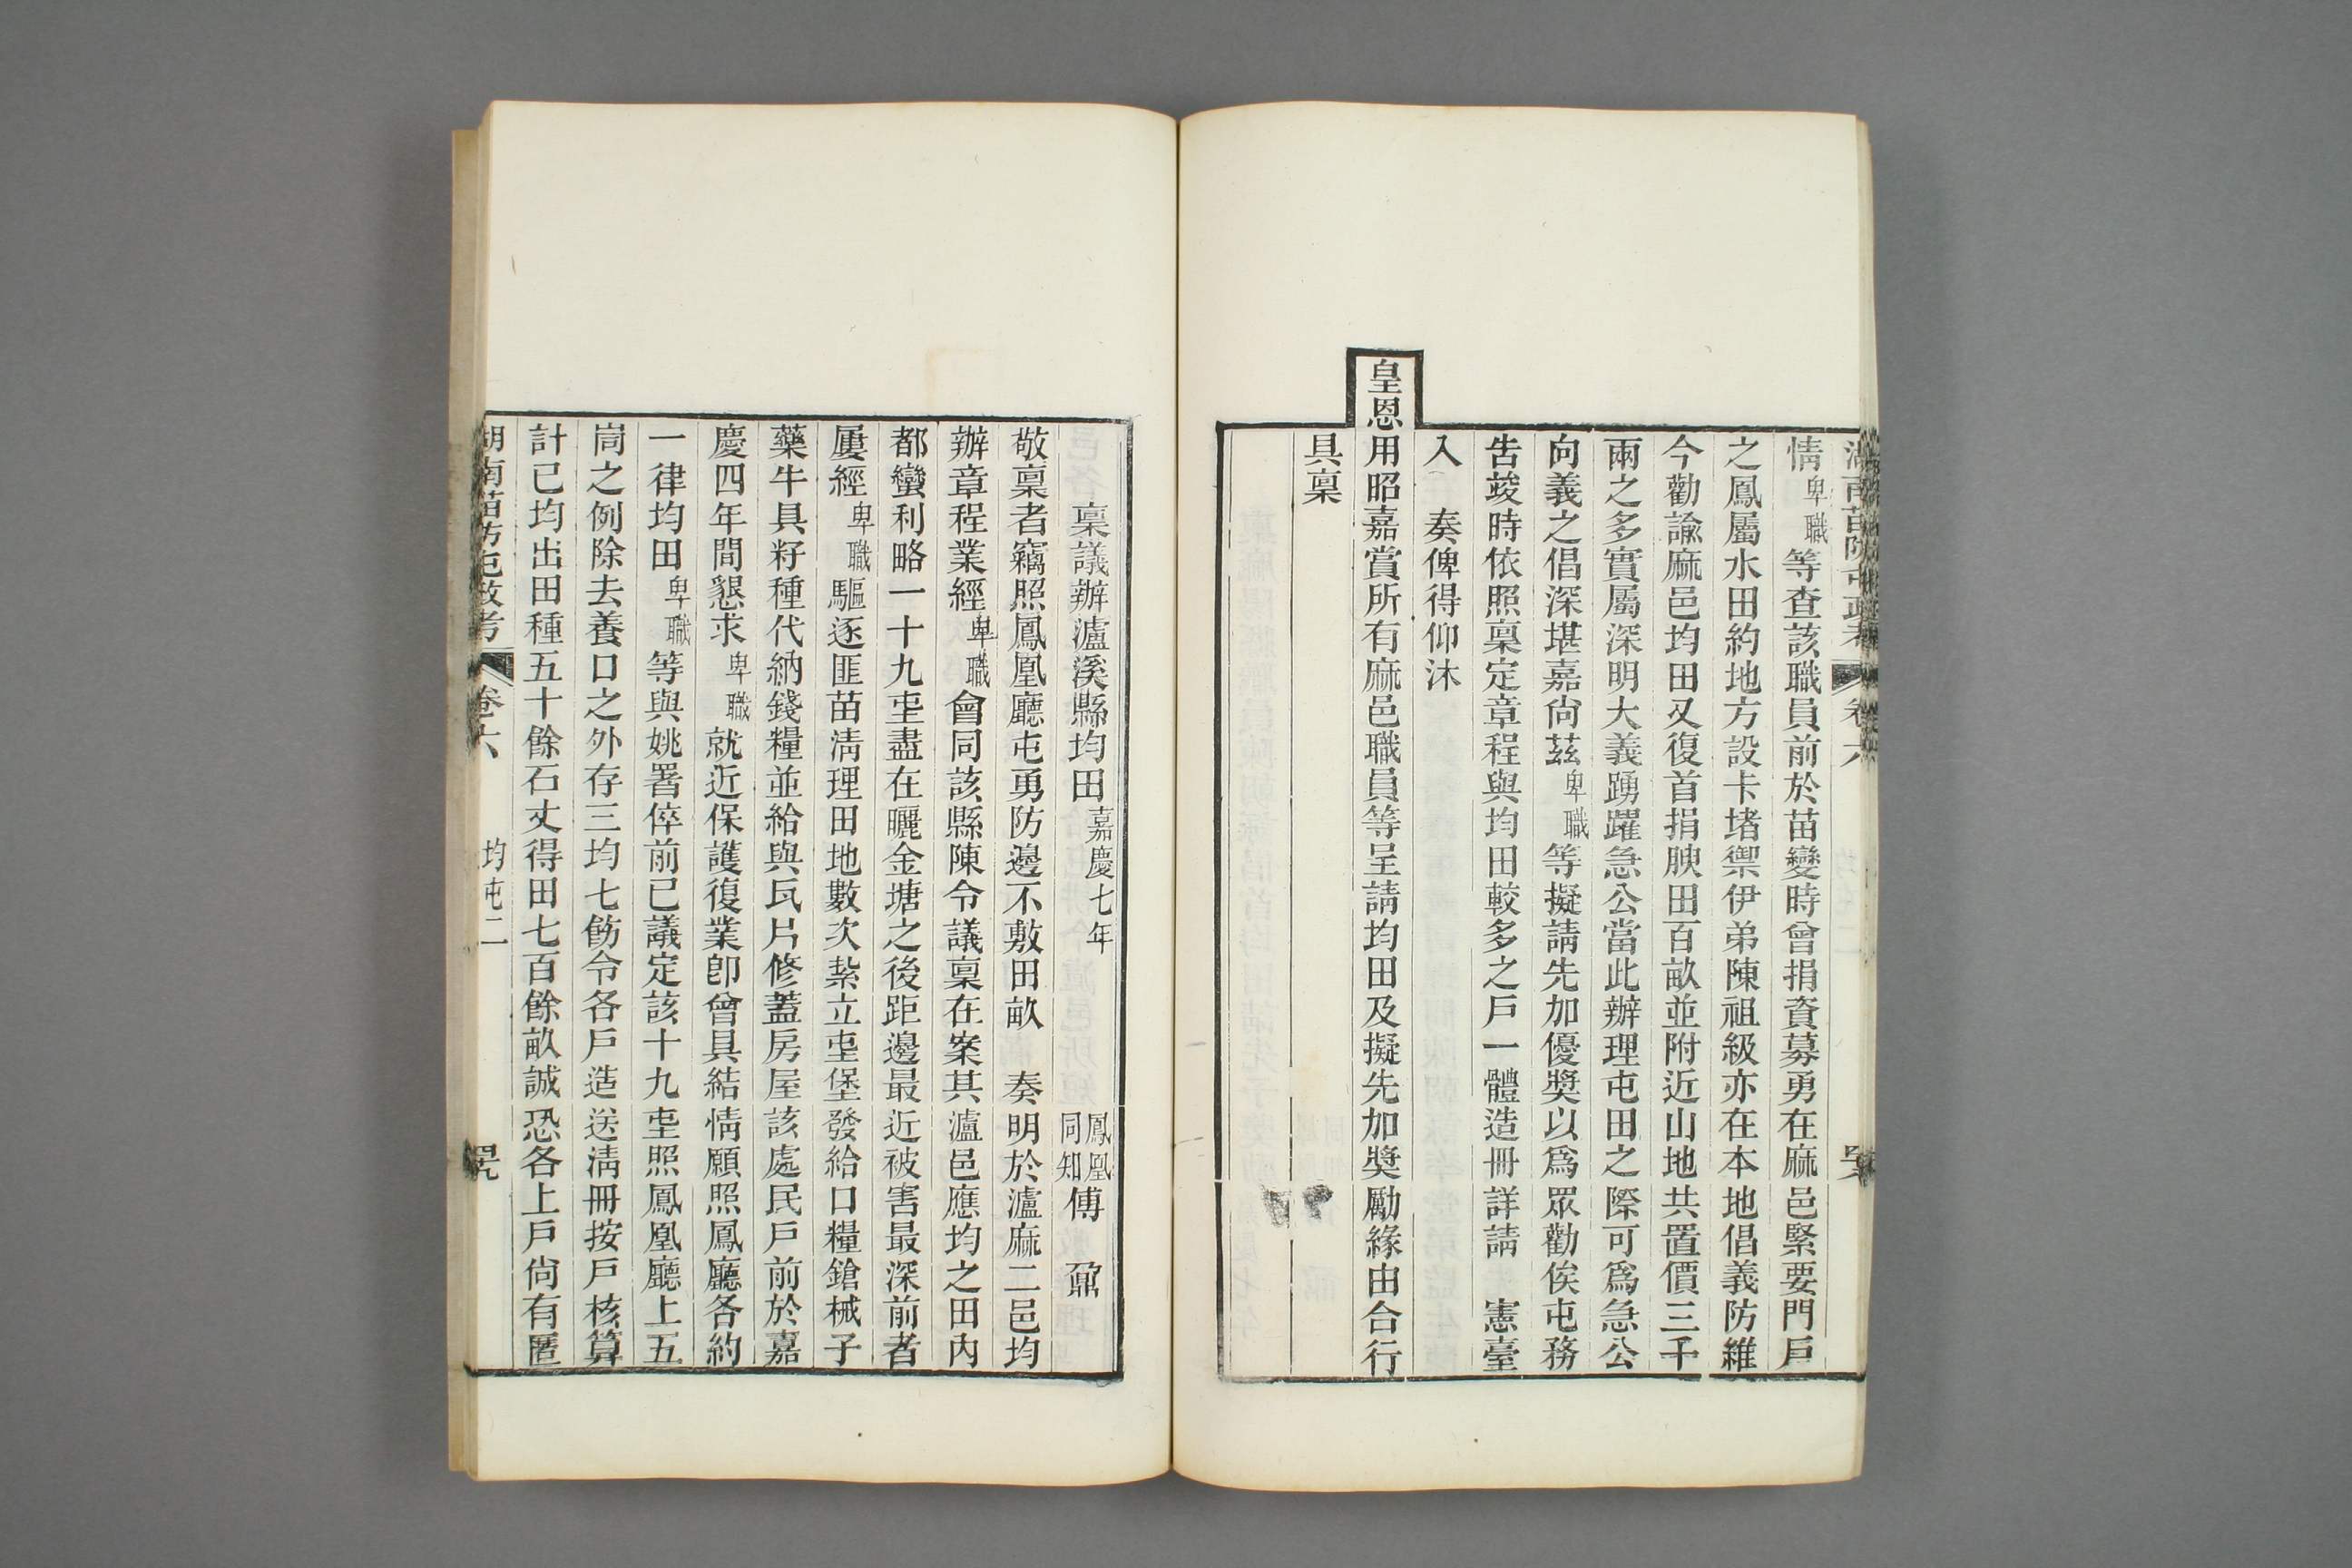 情卑職等查該職員前於苗變時曾捐資募勇在麻邑緊要門戶
之鳳屬水田約地方設卡堵禦伊弟陳祖級亦在本地倡義防維
今勸諭麻邑均田又復首捐腴田百畝並附近山地共置價三千
兩之多實屬深明大義踴躍急公當此辦理屯田之際可為急公
向義之倡深堪嘉尚茲卑職等擬請先加優獎以為眾勸俟屯務
告竣時依照稟定章程與均田較多之戶一體造冊詳請 憲臺
入 奏俾得仰沐
皇恩用昭嘉賞所有麻邑職員等呈請均田及擬先加獎勵緣由合行
具稟
稟議辦瀘溪縣均田嘉慶七年 鳳凰同知傅 鼐
敬稟者竊照鳳凰廳屯勇防邊不敷田畝 奏明於瀘麻二邑均
辦章程業經卑職會同該縣陳令議稟在案其瀘邑應均之田內
都蠻利略一十九寨盡在曬金塘之後距邊最近被害最深前者
屢經卑職驅逐匪苗清理田地數次紮立屯堡發給口糧鎗械子
藥牛具籽種代納錢糧並給與瓦片修蓋房屋該處民戶前於嘉
慶四年間懇求卑職就近保護復業卽曾具結情願照鳳廳各約
一律均田卑職等與姚署倅前已議定該十九寨照鳳凰廳上五
峝之例除去養口之外存三均七飭令各戶造送清冊按戶核算
計已均出田種五十餘石丈得田七百餘畝誠恐各上戶尚有匿
湖南苗防屯政考 卷六 均屯二